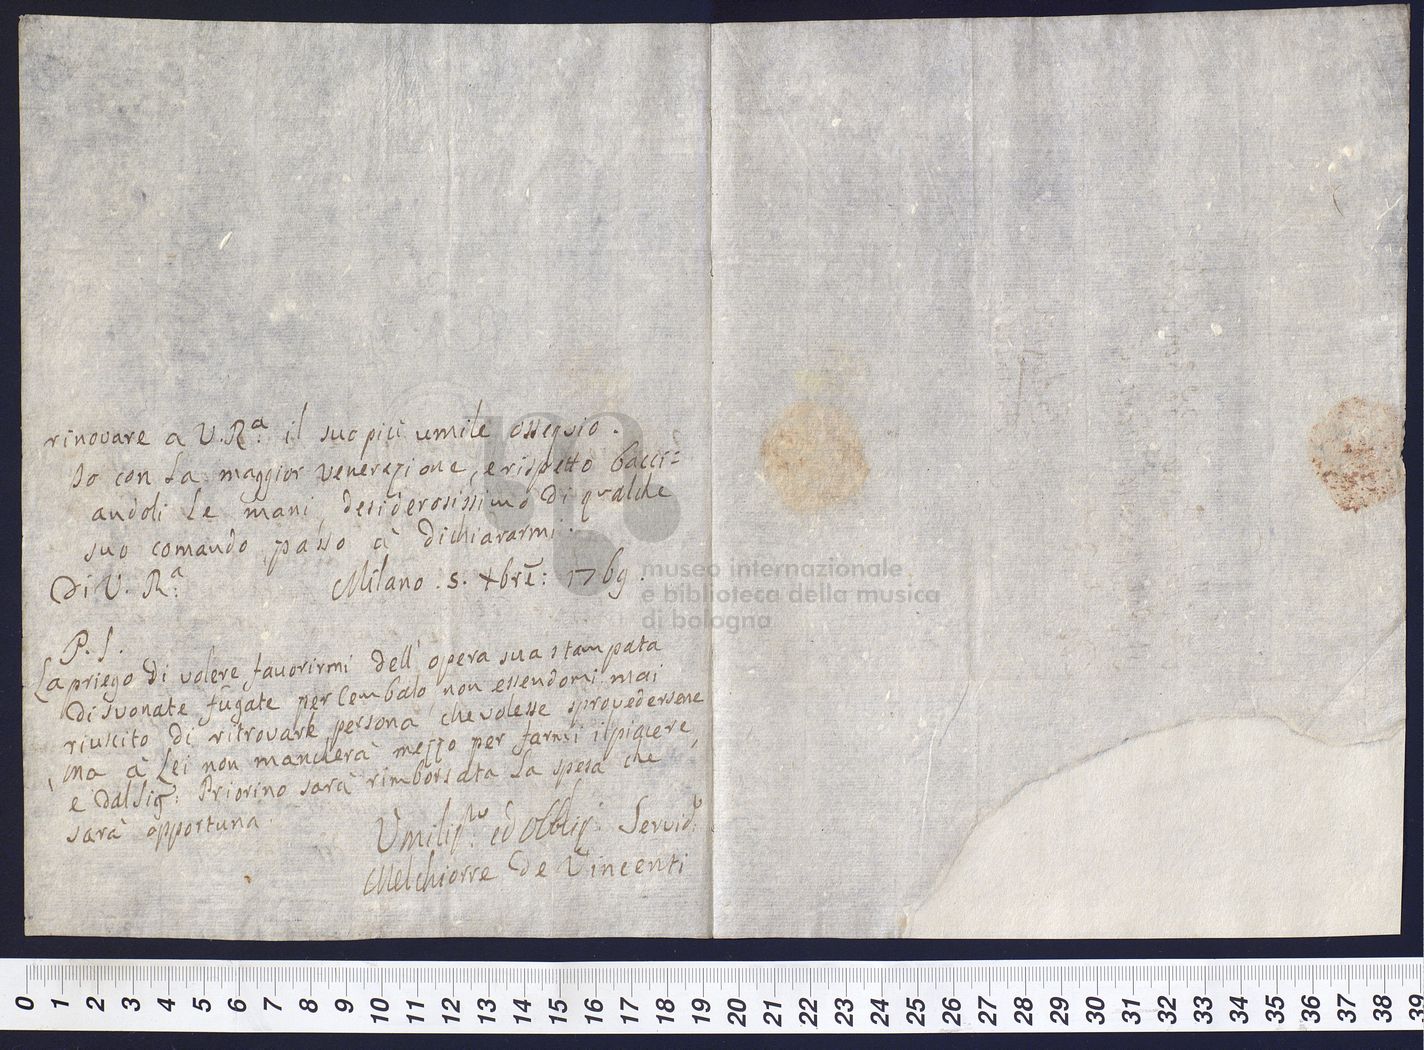 rinovare a V. R.ª il suo più umile ossequio.
Io con la maggior venerazione, e rispetto bacci=
andoli le mani, desiderosissimo di qualche
suo comando passo à dichiararmi.
Di V. R.ª Milano. 5. Xbrē: 1769.
P. S.
La priego di volere favorirmi dell' opera sua stampata
di suonate fugate per Cembalo, non essendomi mai
riuscito di ritrovare persona che volesse sprovedersene
, ma à Lei non mancherà mezzo per farmi il piacere,
e dal Sig: Priorino sarà rimborsata la spesa che
sarà opportuna.
Umiliss.mo ed Obblig. Servid.e
Melchiorre De Vincenti
museo internazionale
e biblioteca della musica
di bologna
0 1 2 3 4 5 6 7 8 9 10 11 12 13 14 15 16 17 18 19 20 21 22 23 24 25 26 27 28 29 30 31 32 33 34 35 36 37 38 39